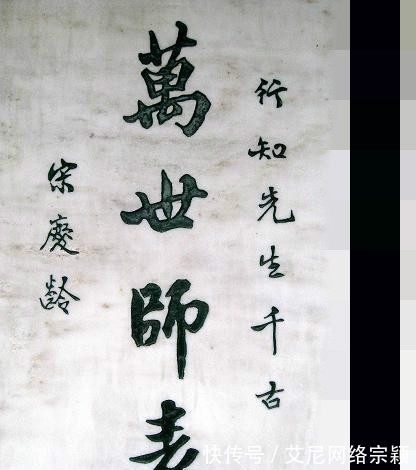 行知先生千古
萬世師表
宋慶齡
快传号 / 艾尼网络宗颖